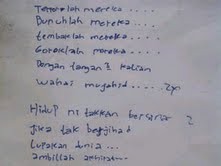 Terorolah mereka .....
Bunuhlah mereka ....
tembaklah mereka ....
Goroklah mereka .....
Dengan tangan2 kalian
wahai mujahid .... 2x
Hidup ni takkan bersinar 2
Jika tak berjihad
Lupakan dunia ...
ambillah akhirat...